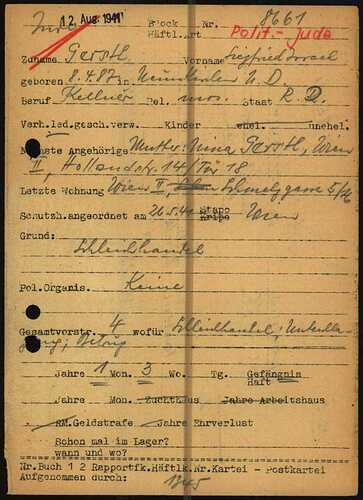 12. Aug. 1941 Block Nr. 8661
Häftl.art Polit.-Jude
Zuname Gerstl, Vorname Siegfried Israel
geboren 8.4.87 in
Beruf Kellner Rel. mos. Staat R.D.
Verh.led.gesch.verw. Kinder ehel. unehel.
Nächste Angehörige Mutter: Nina Gerstl, Wien
II, Hollandstr. 14/Tür 18
Letzte Wohnung Wien II Schmelzgasse 5/
Schutzh.angeordnet am 26.5.41 Stapo Kripo Wien
Grund:
Schleichhandel
Pol.Organis. Keine
Gesamtvorstr. 4 wofür Schleichhandel, Unterschla
gung, Betrug
Jahre 1 Mon. 3 Wo. Tg. Gefängnis
Haft
Jahre Mon. Zuchthaus Jahre Arbeitshaus
RM.Geldstrafe Jahre Ehrverlust
Schon mal im Lager?
wann und wo?
Nr.Buch 1 2 Rapportfk.Häftlk.Nr.Kartei - Postkartei
Aufgenommen durch: